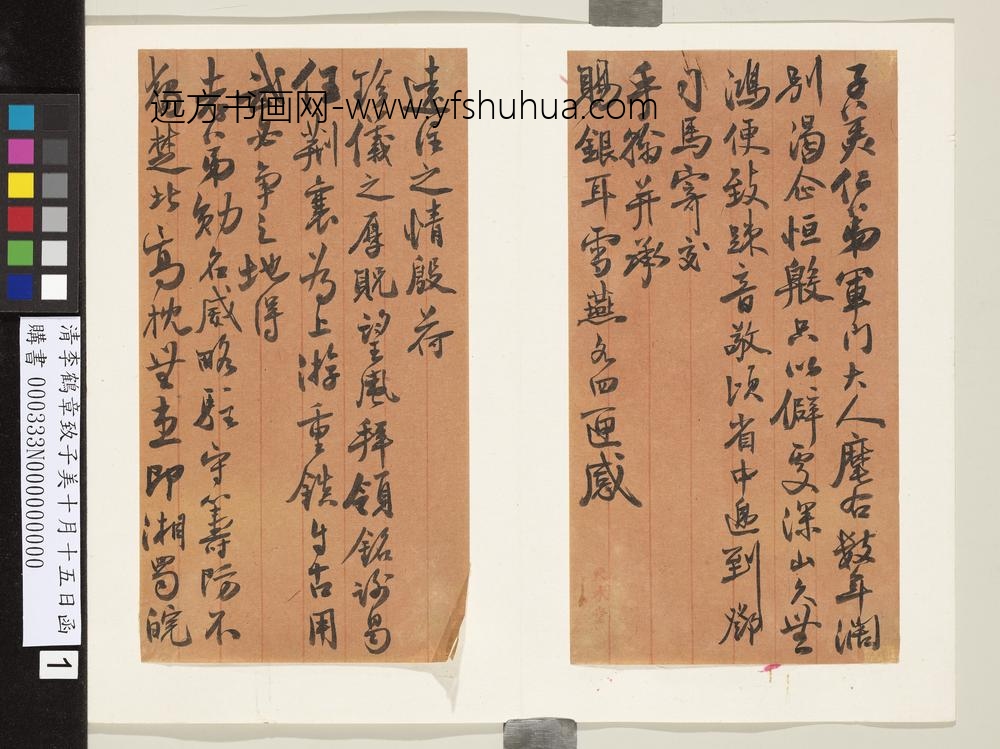 子美仁弟軍門大人麾右數年濶
別渴企恒殷只以僻處深山久無
鴻便致疎音敬頃省中遞到鄧
司馬寄交
手翰并承
賜銀耳雪燕各四匣感
之情殷荷
珍儀之厚貺望風拜領銘謝曷
任荊襄為上游重鎮自古用
武必爭之地得
吾弟勳名威略駐守籌防不
楚北高枕無恙即湘蜀皖
远方书画网-www.yfshuhua.com
清李鶴章致子美十月十五日函
購書 000333N000000000
1